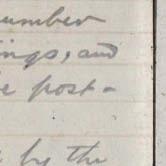 number
ings, and
e post-
by the